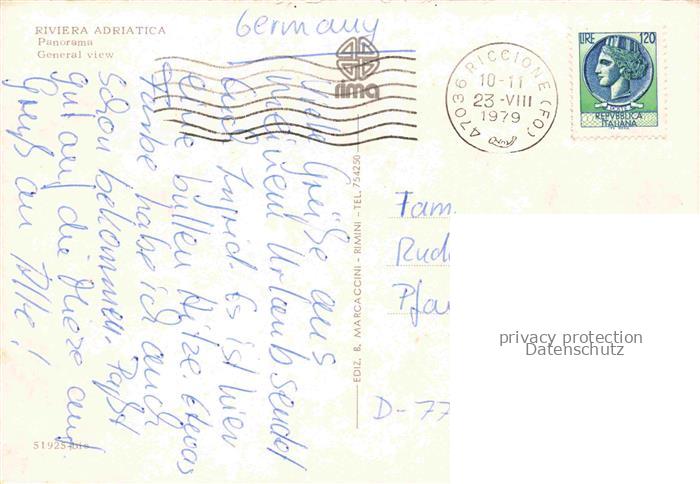 RIVIERA ADRIATICA
Panorama
General view
Germany
rima
47036 RICCIONE (FO)
10-11
23-VIII
1979
LIRE 120
POSTE
REPVBBLICA
ITALIANA
Viele Grüße aus
meinem Urlaub sendet
Euch Ingrid. Es ist hier
eine Hitze. Etwas
Farbe habe ich auch
schon bekommen. Paßt
gut auf die auf.
Gruß an Alle!
EDIZ. B. MARCACCINI - RIMINI - TEL. 754250
Fam.
Rud
Pfa
D-77
privacy protection
Datenschutz